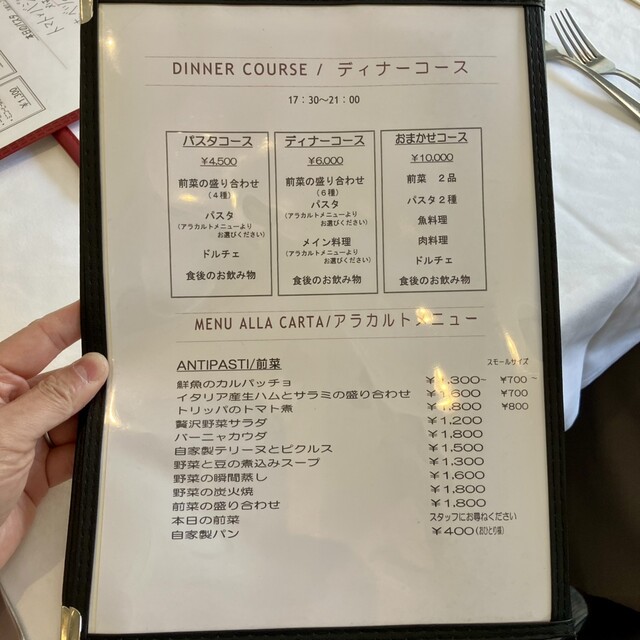 DINNER COURSE / ディナーコース
17：30～21：00
パスタコース
¥4,500
前菜の盛り合わせ
（４種）
パスタ
（アラカルトメニューより
お選びください）
ドルチェ
食後のお飲み物
ディナーコース
¥6,000
前菜の盛り合わせ
（６種）
パスタ
（アラカルトメニューより
お選びください）
メイン料理
（アラカルトメニューより
お選びください）
ドルチェ
食後のお飲み物
おまかせコース
¥10,000
前菜 ２品
パスタ２種
魚料理
肉料理
ドルチェ
食後のお飲み物
MENU ALLA CARTA/アラカルトメニュー
ANTIPASTI/前菜 スモールサイズ
鮮魚のカルパッチョ ¥1.300~ ¥700~
イタリア産生ハムとサラミの盛り合わせ ¥1.600 ¥700
トリッパのトマト煮 ¥1.800 ¥800
贅沢野菜サラダ ¥1.200
バーニャカウダ ¥1.800
自家製テリーヌとピクルス ¥1.500
野菜と豆の煮込みスープ ¥1.300
野菜の瞬間蒸し ¥1.600
野菜の炭火焼 ¥1.800
前菜の盛り合わせ ¥1.800
本日の前菜 スタッフにお尋ねください
自家製パン ¥400(おひとり様)